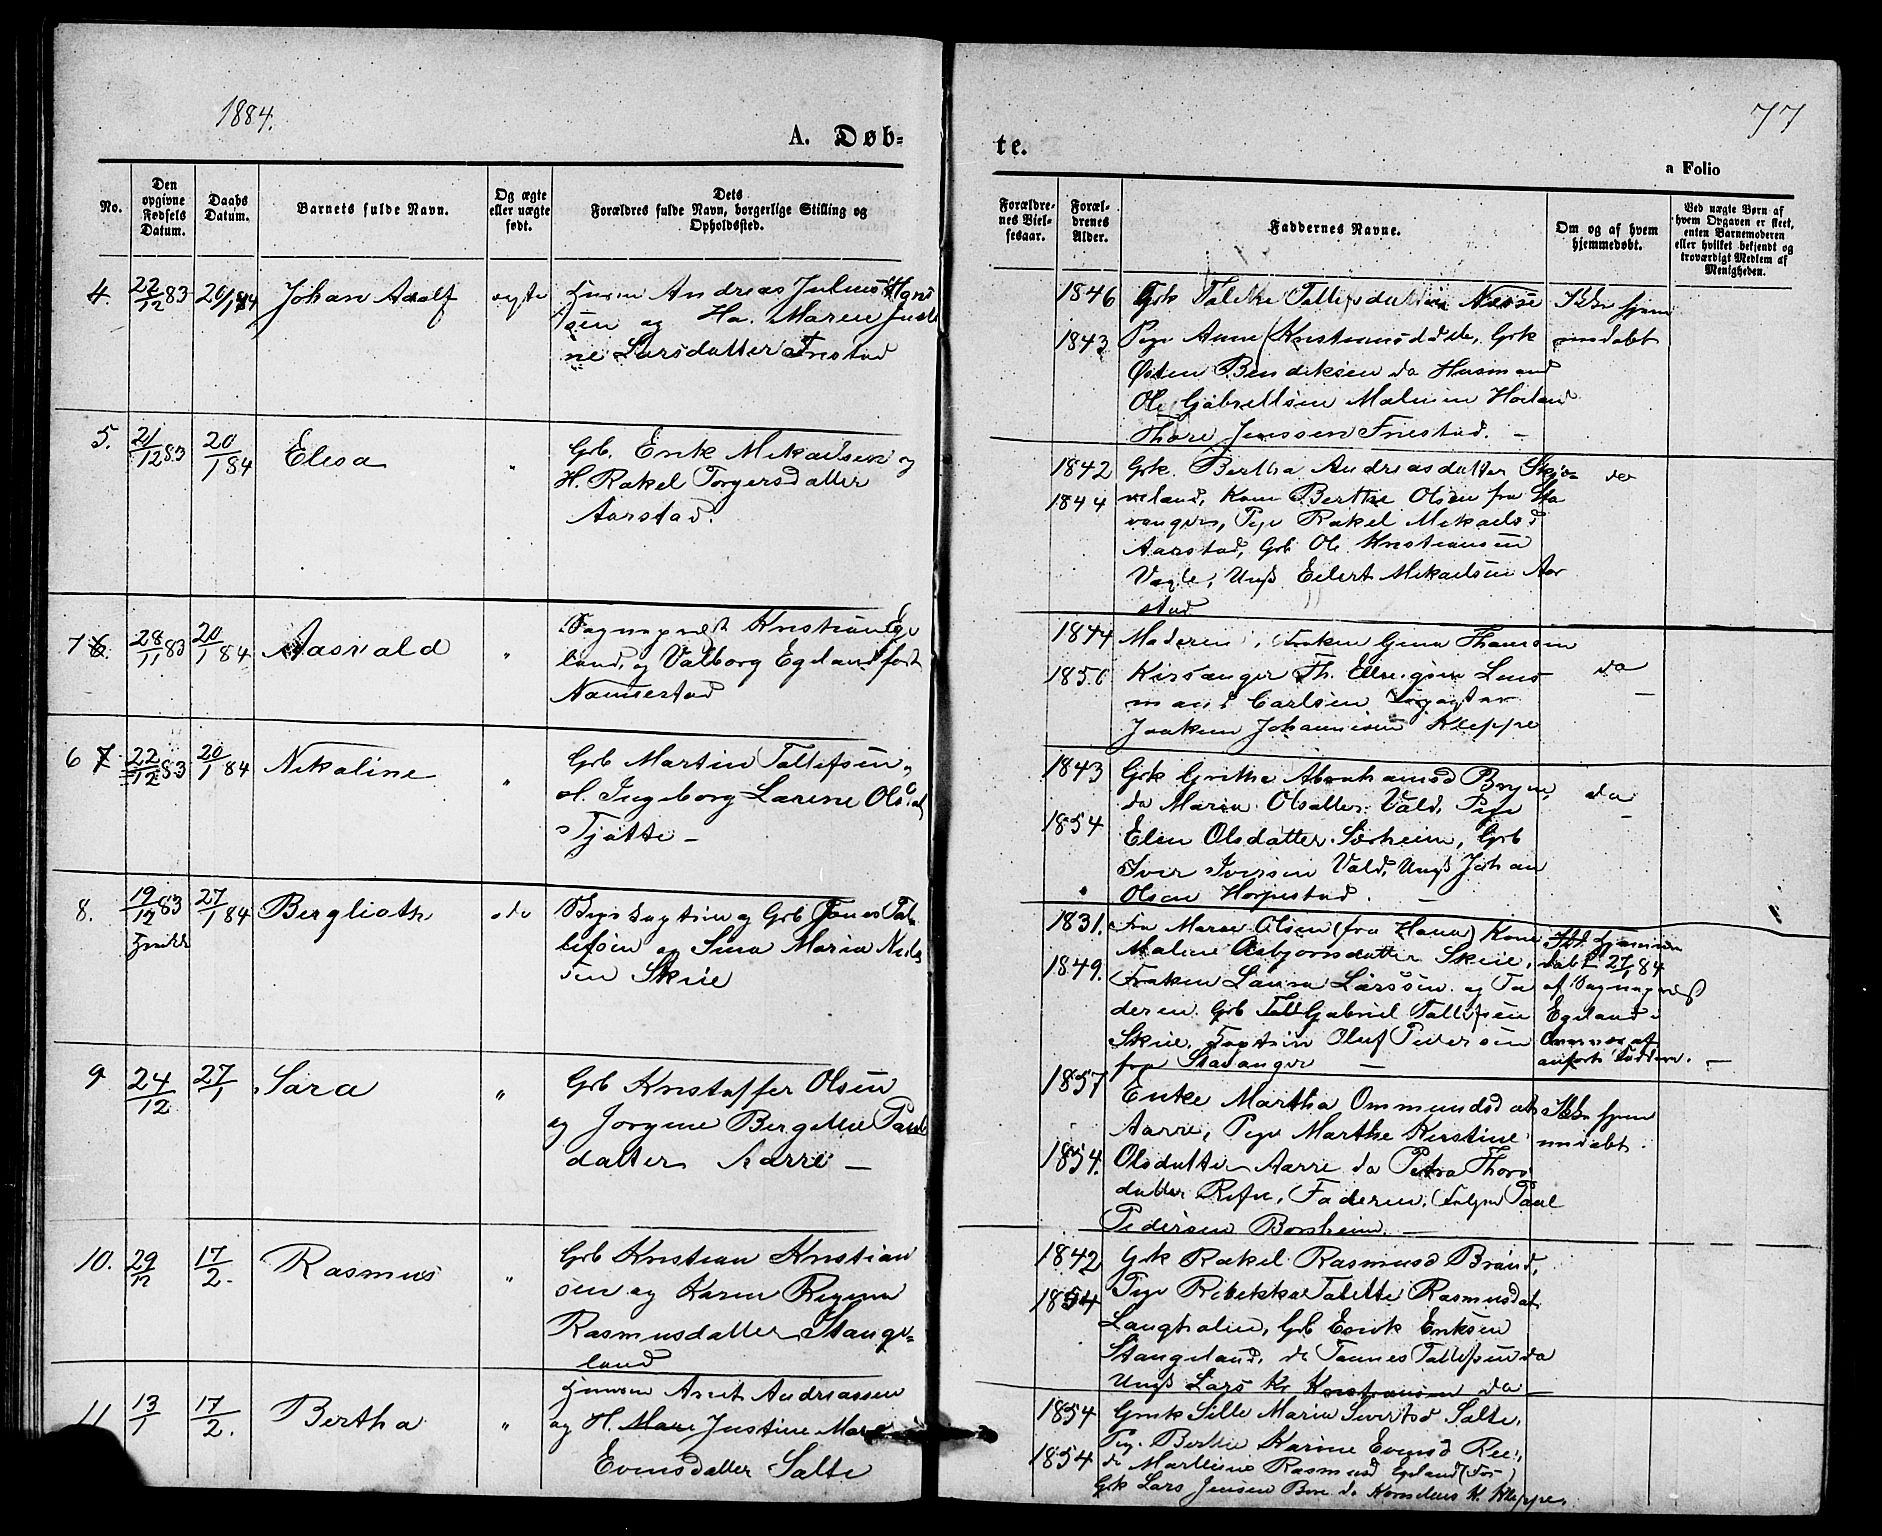 1884.
77
A. Døb-
te.
a Folio
No.
Den
opgivne
Fødsels
Datum.
Daabs
Datum.
Barnets fulde Navn.
Og ægte
eller uægte
født.
Dets
Forældres fulde Navn, borgerlige Stilling og
Opholdssted.
Forældre-
nes Viel-
sesaar.
Foræl-
drenes
Alder.
Faddernes Navne.
Om og af hvem
hjemmedøbt.
Ved uægte Børn af
hvem Opgaven er skeet,
enten Barnemoderen
eller hvilket bekjendt og
troværdigt Medlem af
Menigheden.
4. 22/12 83 20/1 84 Johan Adolf ægte
Andreas Julius
sen og Maren
ne Larsdatter Friestad
1846
1843
Østen Bendiksen do Husmand
Ole Gabrielsen Malmin Hoiland
Thore Jenssen Friestad. —
Ikke hjem
medøbt
5. 21/12 83 20/1 84 Elesa "
Grb. Erik Mikaelsen og
H. Rakel Torgersdatter
Aarstad.
1842
1844
Grk. Bertha Andreasdatter Skjæ-
veland, Kone Berthe Olsen fra Sta
vanger, Pige Rakel Mikaelsd
Aarstad, Grb Ole Kristiansen
Vagle, Ungk Eilert Mikaelsen Aar
stad
do
7 6. 28/11 83 20/1 84 Aasvald "
Sognepræst Kristian Ege
land, og Valborg Egeland født
Namsestad
1844
1850
Moderen, Frøken Gina Thamsen
Kirsanger Th. Ellingsen Lens
mand Carlsen
Joakim Johannesen Kleppe
do
6 7 22/12 83 20/1 84 Nikoline "
Grb Martin Tollefsen
H. Ingeborg Larine Olsd
Tjøtte —
1843
1854
Grk Grethe Abrahamsd Bryne
do Maren Olsdatter Vald, Pige
Elen Olsdatter Sørheim, Grb
Iver Iversen Vald, Ungk Johan
Olsen Horpestad. —
do
8. 19/12 83 27/1 84 Berglioth do
og Grb Tønnes Tol
lefsen og Sina Maria Niels
sen Skeie
1831.
1849.
Fru Marie Olsen (fra Hana) Kone
Maline Asbjornsdatter Skeie,
Frøken Laura Larssen og Fa
deren. Grb Gabriel Tollefsen
Skeie, Oluf Pedersen
fra Stavanger —
døbt 27/1 84
af Sognepræst
Egeland
9 24/12 27/1 Sara "
Grb Kristoffer Olsen
og Jorgine Bergitte Pauls
datter Aarre —
1857
1854.
Enke Martha Ommundsdat
Aarre, Pige Marthe Kirstine
Olsdatter Aarre do Petra Thors
datter Refn, Faderen, Paul
Pedersen Borsheim. —
Ikke hjem
medøbt.
10. 29/12 17/2. Rasmus "
Grb Kristian Kristian
sen og Karen Regina
Rasmusdatter Stange-
land
1842
1854
Grk Rakel Rasmusd Brønd,
Pige Rebekka Talette Rasmusdat
Langholen, Grb Erik Eriksen
Stangeland, do Tønnes Tollefsen do
Ungk Lars Kr Kristiansen do —
11 13/1 17/2. Bertha "
Arnt Andreassen
og H. Justine Mar
Evensdatter Salte
1854
1854
Sille Maria Sivertsd Salte,
Pig. Berthe Karine Evensd Ree,
do Marthine Rasmusd Egeland
Grk Lars Jensen Bore do Kornelius K. Kleppe.